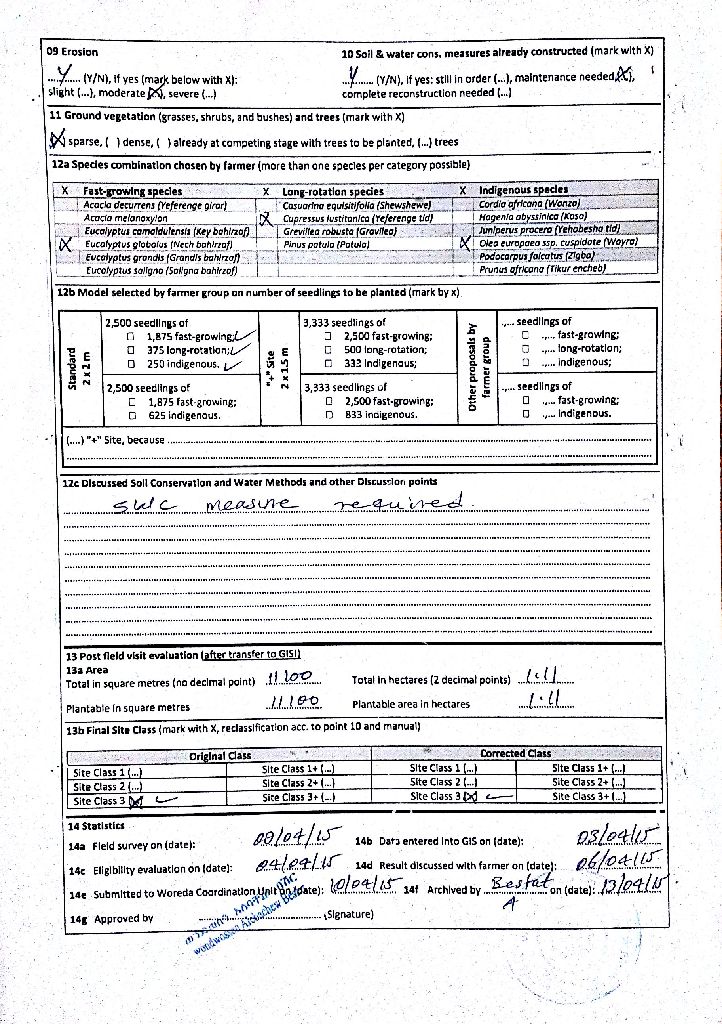 09 Erosion
10 Soil & water cons. measures already constructed (mark with X)
..Y..... (Y/N), if yes (mark below with X):
..Y..... (Y/N), if yes: still in order (...), maintenance needed (X),
slight (...), moderate (X), severe (...)
complete reconstruction needed (...)
11 Ground vegetation (grasses, shrubs, and bushes) and trees (mark with X)
(X) sparse, ( ) dense, ( ) already at competing stage with trees to be planted, (...) trees
12a Species combination chosen by farmer (more than one species per category possible)
X Fast-growing species X Long-rotation species X Indigenous species
Acacia decurrens (Yeferenge girar) Casuarina equisitifolia (Shewshewe) Cordia africana (Wanza)
Acacia melanoxylon X Cupressus lustitanica (Yeferenge tid) Hagenia abyssinica (Koso)
Eucalyptus camaldulensis (Key bahirzaf) Grevillea robusta (Gravilea) Juniperus procera (Yehabesha tid)
X Eucalyptus globulus (Nech bahirzaf) Pinus patula (Patula) X Olea europaea ssp. cuspidate (Wayra)
Eucalyptus grandis (Grandis bahirzaf) Podocarpus falcatus (Zigba)
Eucalyptus saligna (Saligna bahirzaf) Prunus africana (Tikur encheb)
12b Model selected by farmer group on number of seedlings to be planted (mark by x)
Standard
2 x 2 m
2,500 seedlings of
☐ 1,875 fast-growing; ✓
☐ 375 long-rotation; ✓
☐ 250 indigenous. ✓
2,500 seedlings of
☐ 1,875 fast-growing;
☐ 625 indigenous.
"+" Site
2 x 1.5 m
3,333 seedlings of
☐ 2,500 fast-growing;
☐ 500 long-rotation;
☐ 333 indigenous;
3,333 seedlings of
☐ 2,500 fast-growing;
☐ 833 indigenous.
Other proposals by
farmer group
.,... seedlings of
☐ .,... fast-growing;
☐ .,... long-rotation;
☐ .,... indigenous;
.,... seedlings of
☐ .,... fast-growing;
☐ .,... indigenous.
(....) "+" Site, because
12c Discussed Soil Conservation and Water Methods and other Discussion points
SWC measure required
13 Post field visit evaluation (after transfer to GIS!)
13a Area
Total in square metres (no decimal point) 11100 Total in hectares (2 decimal points) 1.11
Plantable in square metres 11100 Plantable area in hectares 1.11
13b Final Site Class (mark with X, reclassification acc. to point 10 and manual)
Original Class Corrected Class
Site Class 1 (...) Site Class 1+ (...) Site Class 1 (...) Site Class 1+ (...)
Site Class 2 (...) Site Class 2+ (...) Site Class 2 (...) Site Class 2+ (...)
Site Class 3 (X) ✓ Site Class 3+ (...) Site Class 3 (X) ✓ Site Class 3+ (...)
14 Statistics
14a Field survey on (date): 14b Data entered into GIS on (date): 03/04/15
14c Eligibility evaluation on (date): 04/04/15 14d Result discussed with farmer on (date): 06/04/15
14e Submitted to Woreda Coordination Unit on (date): 10/04/15 14f Archived by Bestat A on (date): 13/04/15
14g Approved by (Signature)